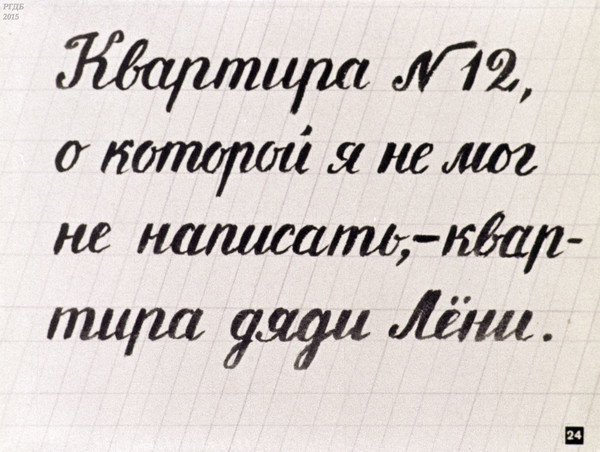 РГДБ
2015
Квартира N 12,
о которой я не мог
не написать,–квар-
тира дяди Лёни.
24